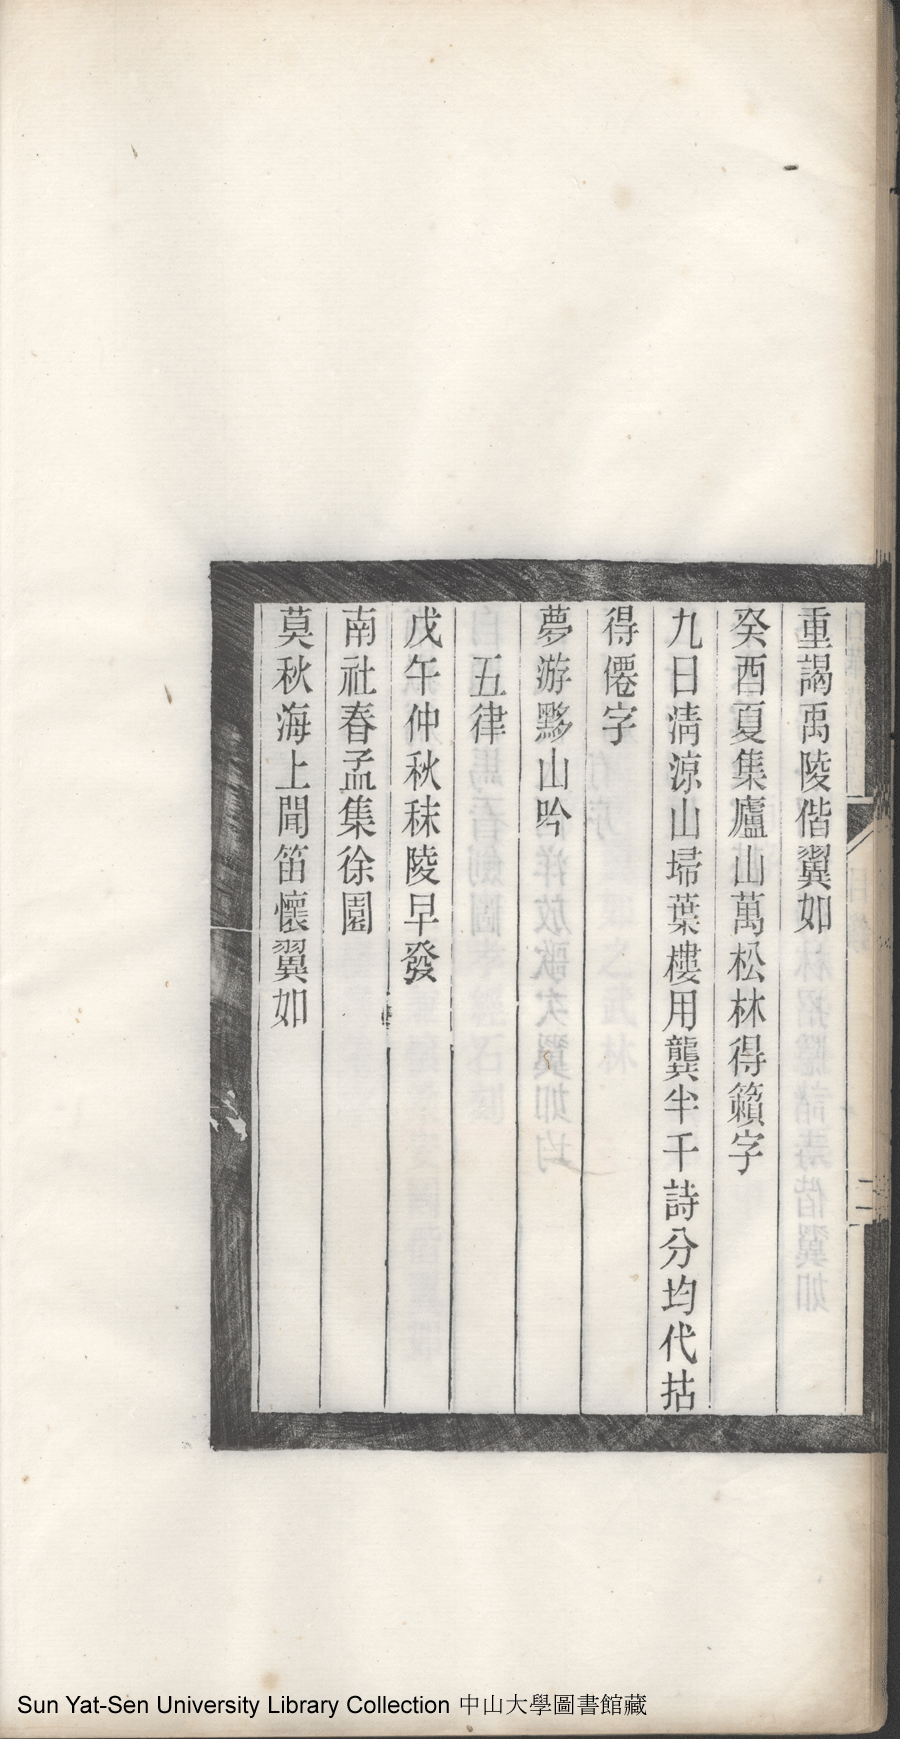 重謁禹陵偕翼如
癸酉夏集廬山萬松林得籟字
九日清涼山埽葉樓用龔半千詩分均代拈
得僊字
夢游黟山吟
五律
戊午仲秋秣陵早發
南社春孟集徐園
莫秋海上聞笛懷翼如
二
Sun Yat-Sen University Library Collection 中山大學圖書館藏